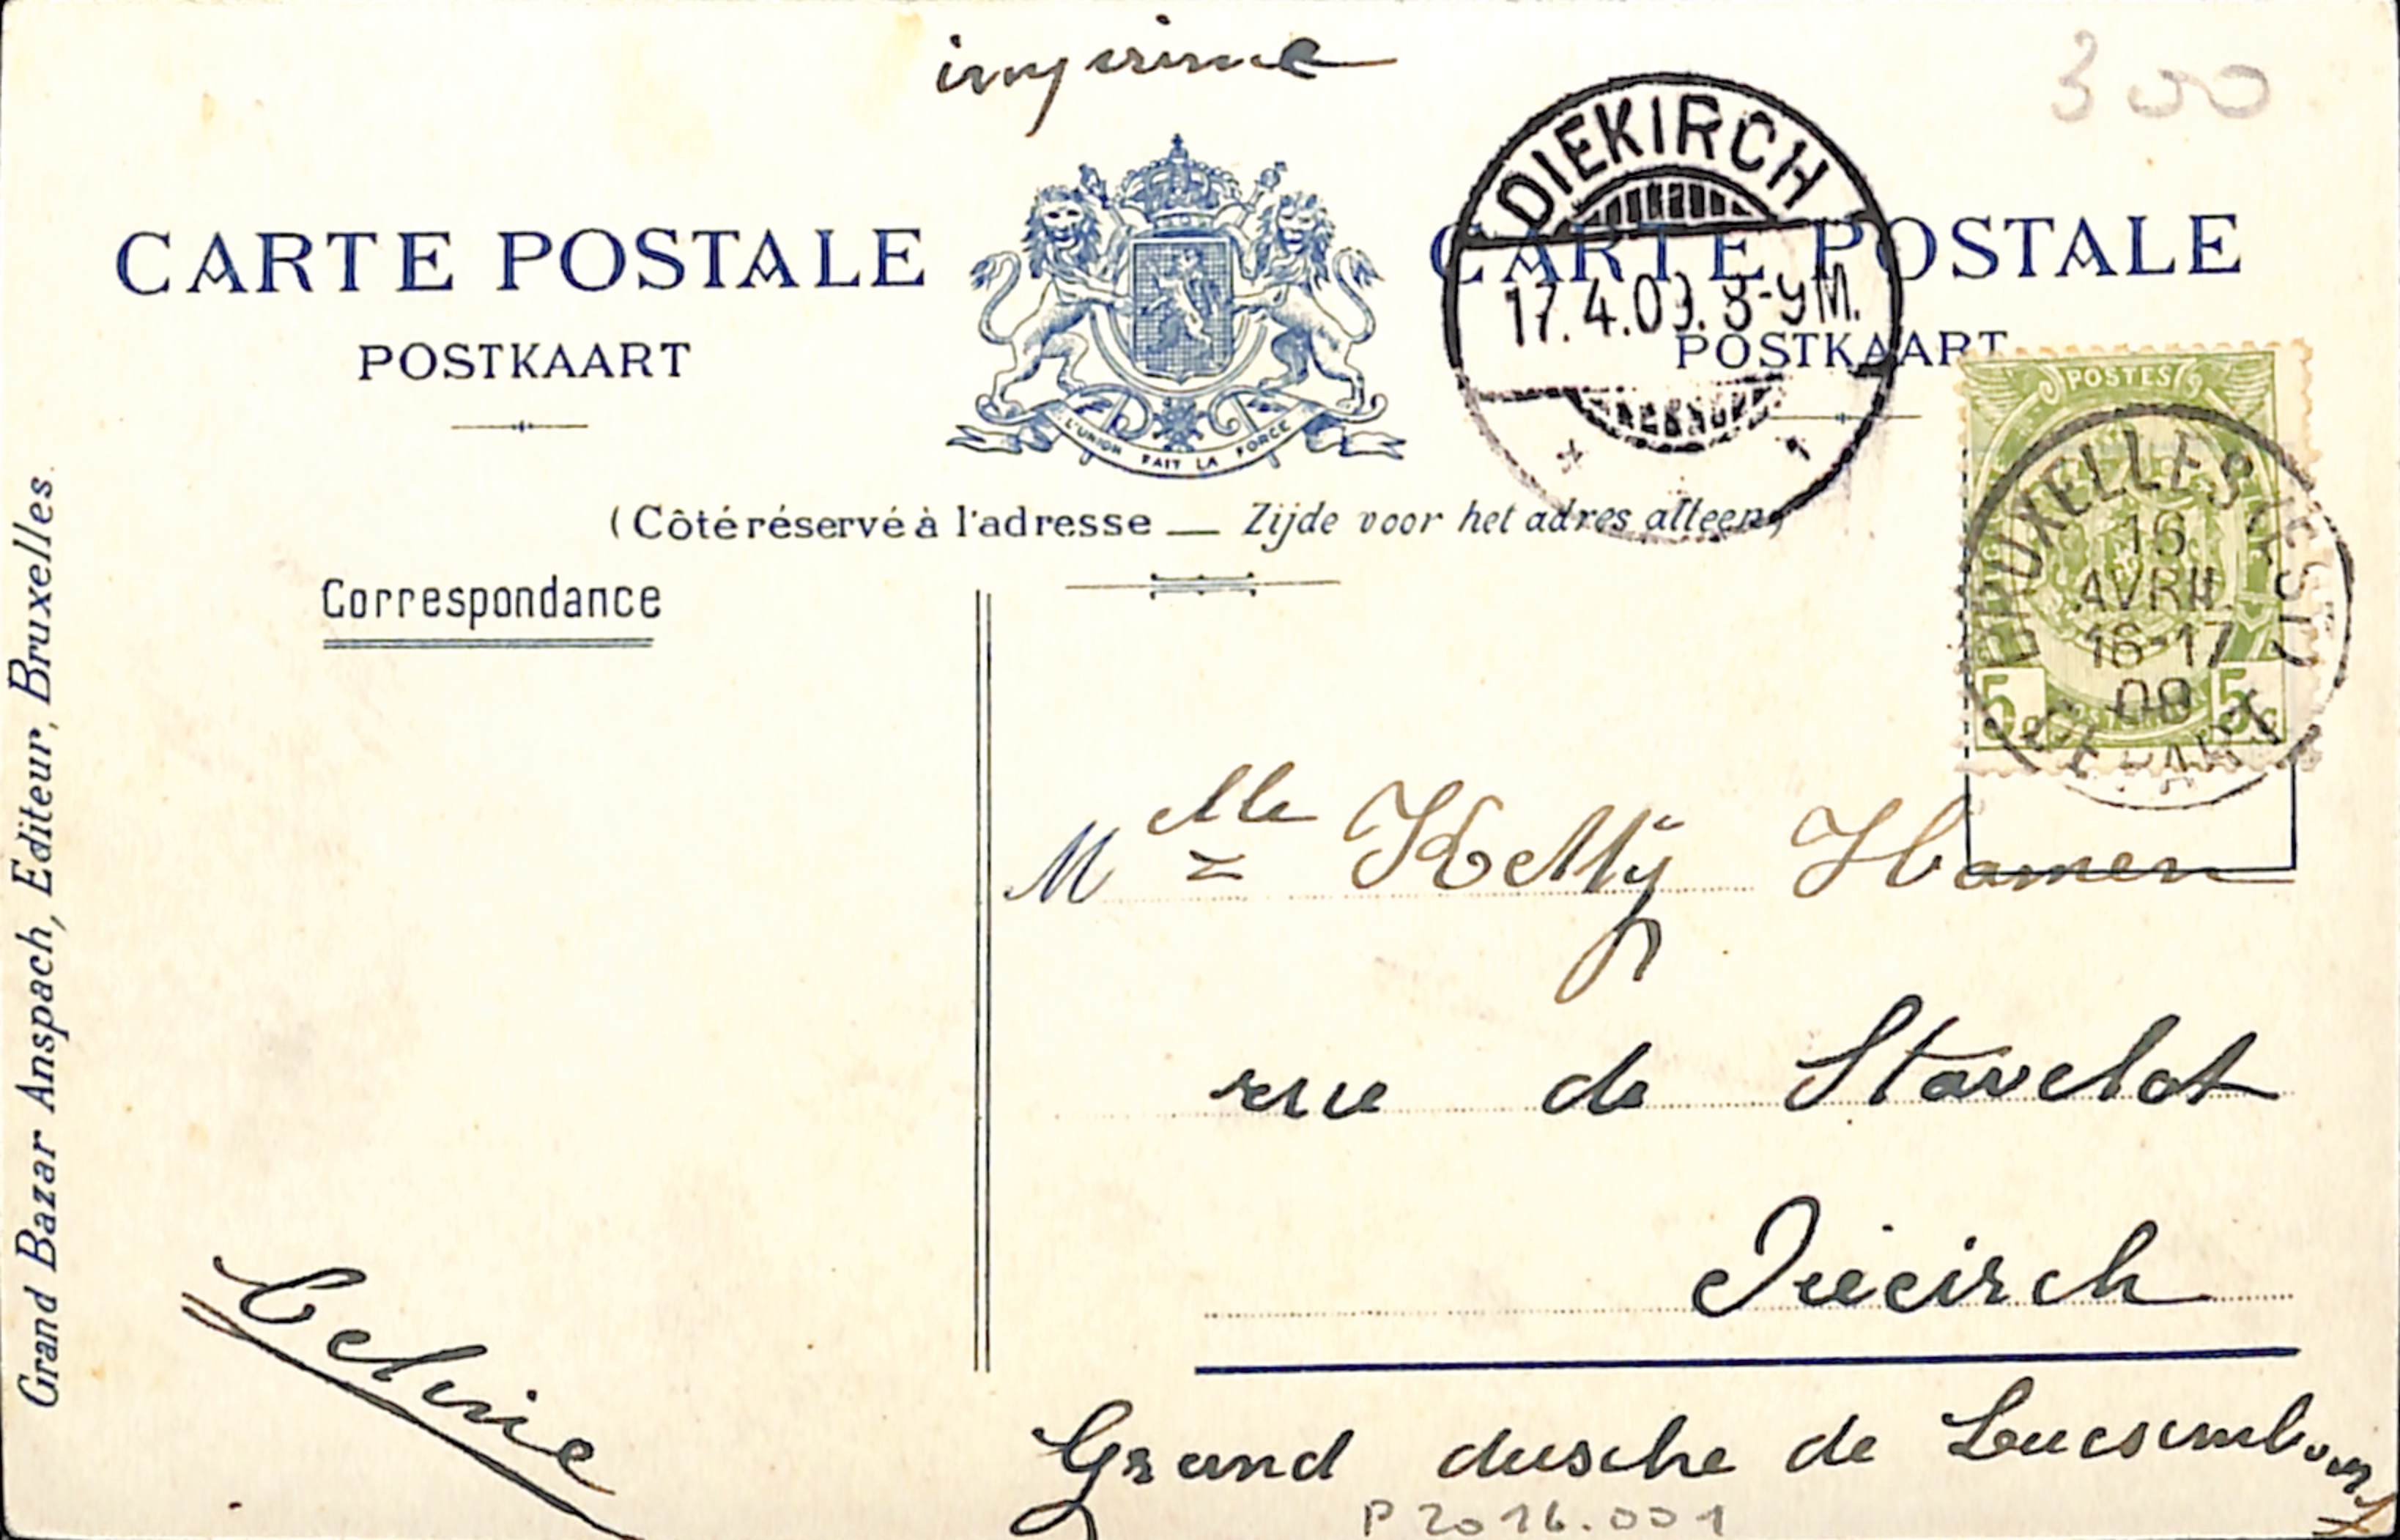 imprime
300
CARTE POSTALE
POSTKAART
L'UNION FAIT LA FORCE
DIEKIRCH
17.4.09. 8-9M.
CARTE POSTALE
POSTKAART
POSTES
5c 5c
BRUXELLES (EST)
16
AVRIL
16-17
09
DEPART
(Côté réservé à l'adresse — Zijde voor het adres alleen)
Correspondance
Mlle Ketty Hamen
rue de Stavelot
Grand Bazar Anspach, Editeur, Bruxelles.
Diecirch
Grand dusche de
P2016.001